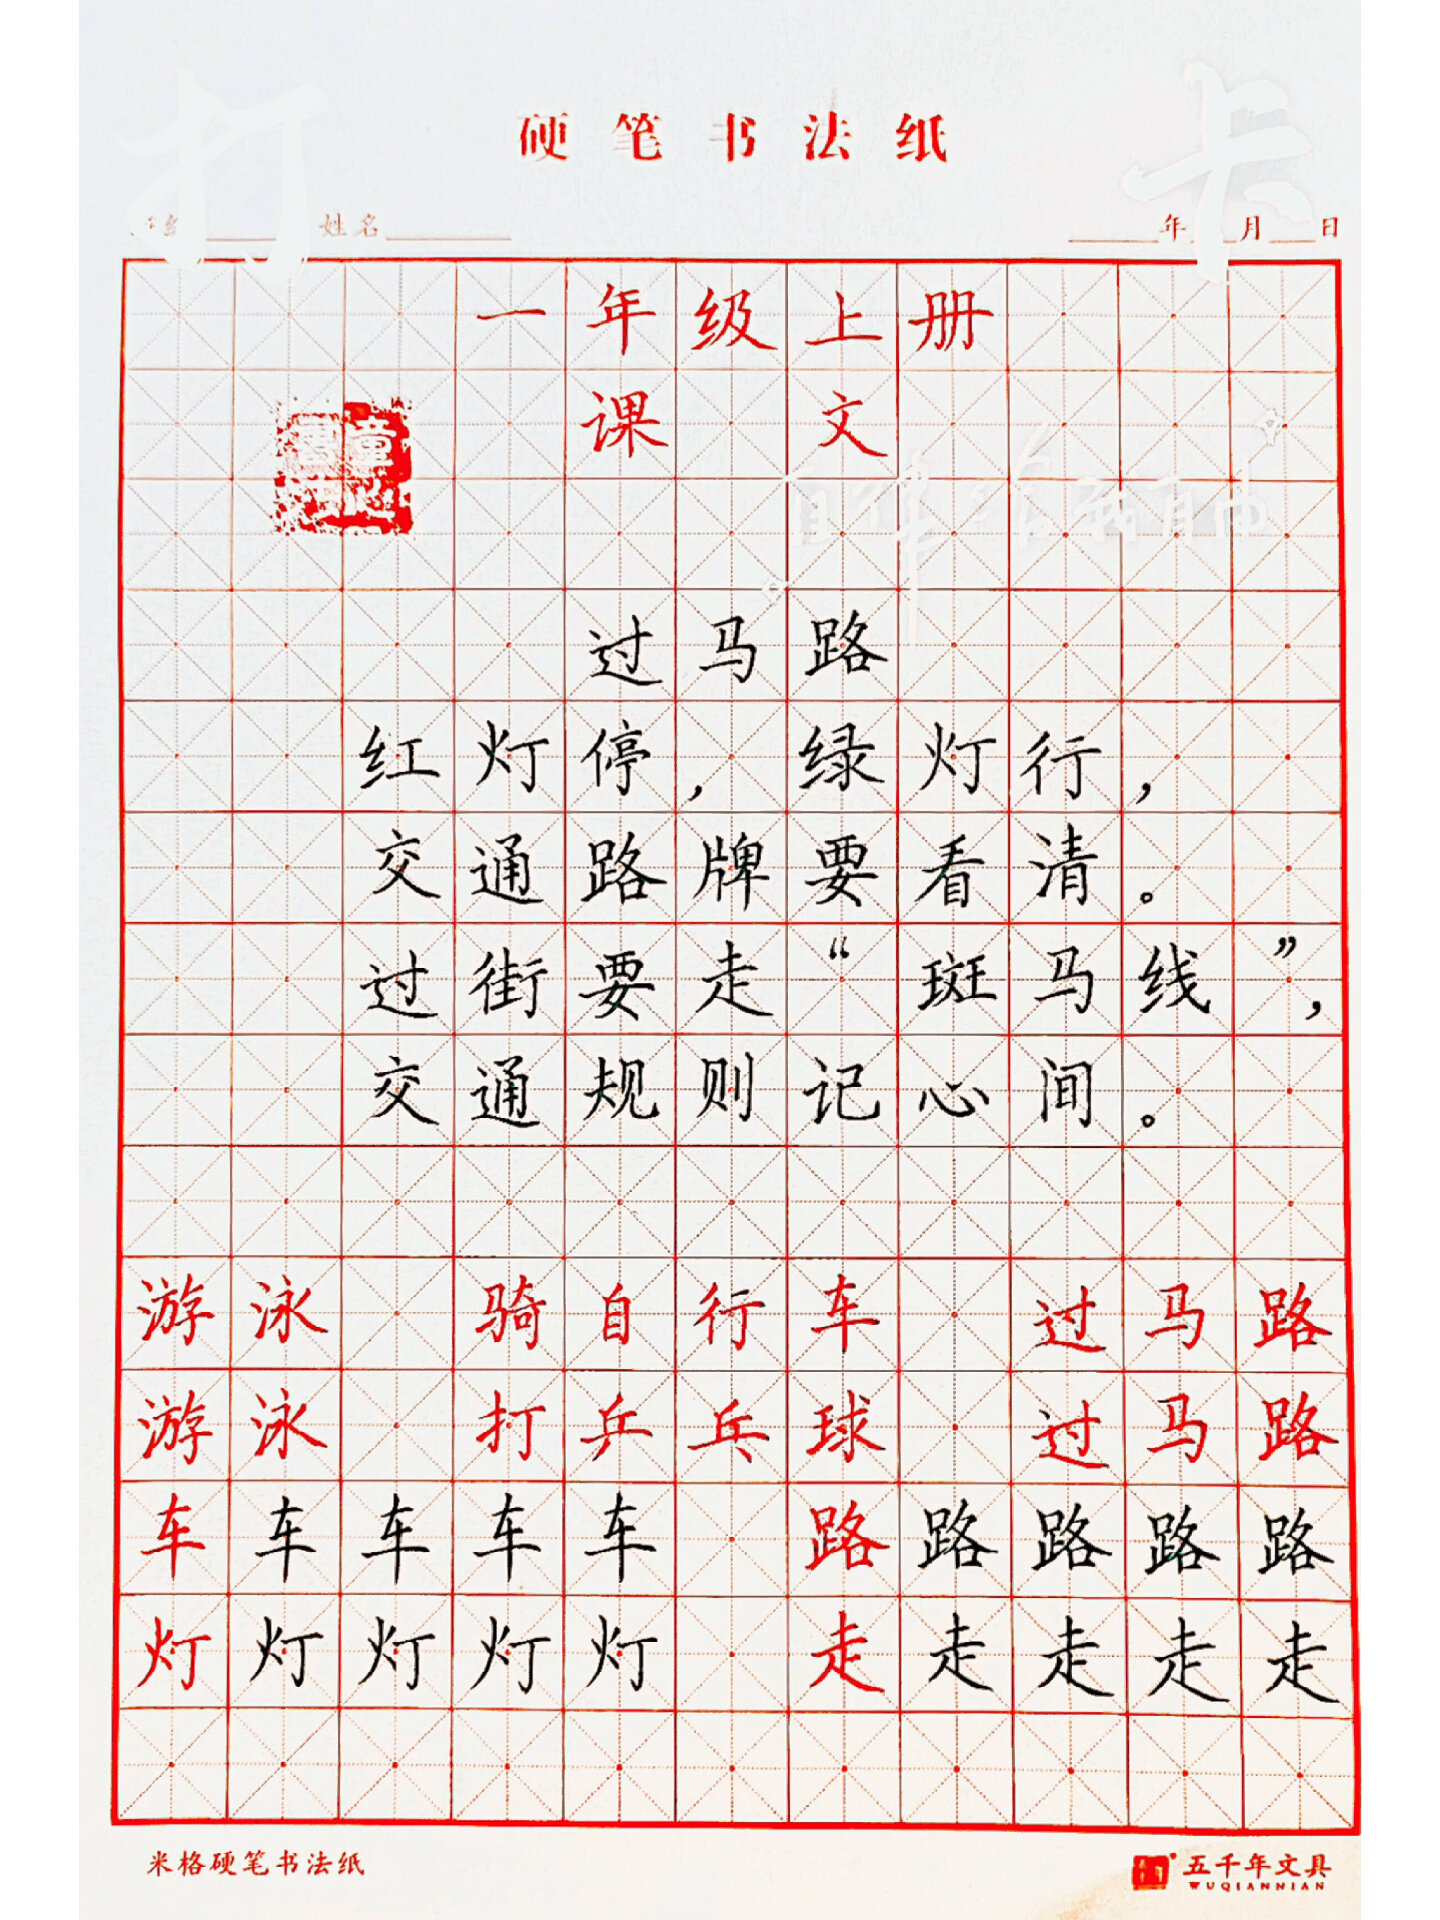 打 卡
硬笔书法纸
姓名 年 月 日
一年级上册
课 文
过马路
红灯停，绿灯行，
交通路牌要看清。
过街要走“斑马线”，
交通规则记心间。
游泳 骑自行车 过马路
游泳 打乒乓球 过马路
车车车车车 路路路路路
灯灯灯灯灯 走走走走走
米格硬笔书法纸
五千年文具
WUQIANNIAN